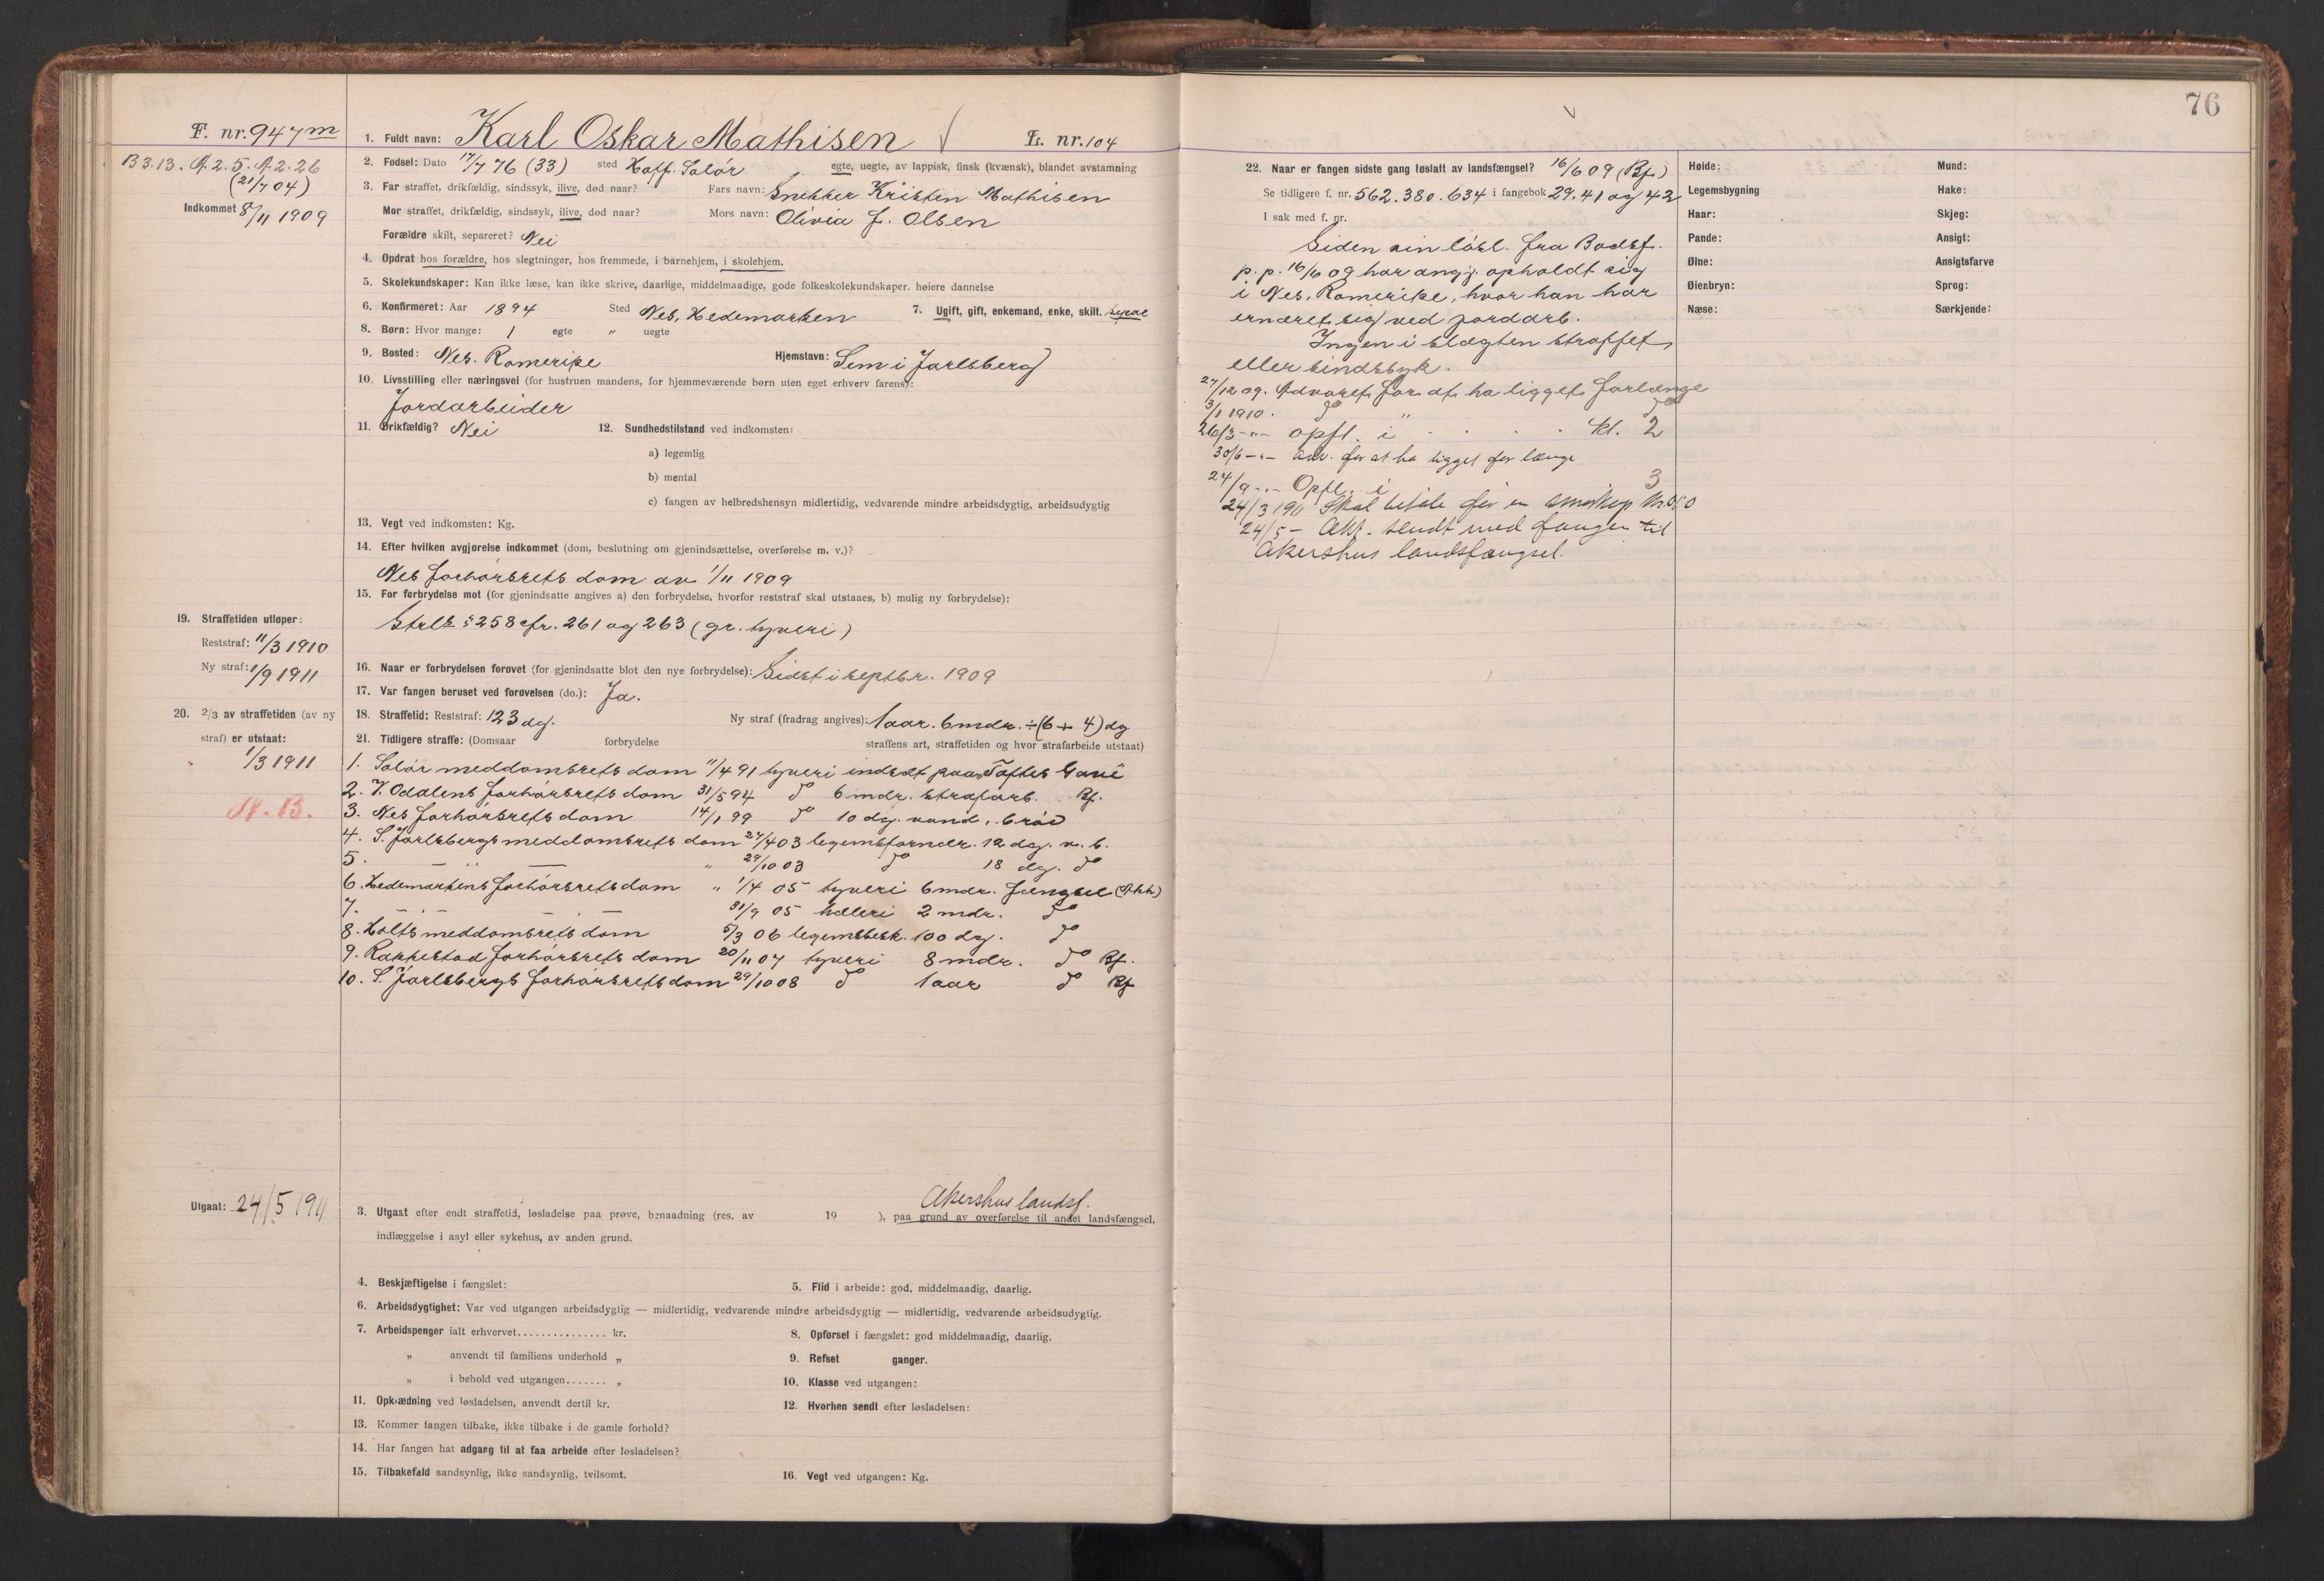 76
F. nr. 947 m
1. Fuldt navn: Karl Oskar Mathisen
L. nr. 104
B 3.13. A. 2. 5. A. 2. 26
(21/7 04)
Indkommet 8/11 1909
2. Fødsel: Dato 17/7 76 (33) sted Hoff. Solør egte, uegte, av lappisk, finsk (kvænsk), blandet avstamning
3. Far straffet, drikfældig, sindssyk, ilive, død naar? Fars navn: Snekker Kristen Mathisen
Mor straffet, drikfældig, sindssyk, ilive, død naar? Mors navn: Olivia J. Olsen
Forældre skilt, separeret? Nei
4. Opdrat hos forældre, hos slegtninger, hos fremmede, i barnehjem, i skolehjem.
5. Skolekundskaper: Kan ikke læse, kan ikke skrive, daarlige, middelmaadige, gode folkeskolekundskaper. høiere dannelse
6. Konfirmeret: Aar 1894 Sted Nes, Hedemarken 7. Ugift, gift, enkemand, enke, skilt.
8. Børn: Hvor mange: 1 egte " uegte
9. Bosted: Nes. Romerike Hjemstavn: Sem i Jarlsberg
10. Livsstilling eller næringsvei (for hustruen mandens, for hjemmeværende børn uten eget erhverv farens):
Jordarbeider
11. Drikfældig? Nei 12. Sundhedstilstand ved indkomsten:
a) legemlig
b) mental
c) fangen av helbredshensyn midlertidig, vedvarende mindre arbeidsdygtig, arbeidsudygtig
13. Vegt ved indkomsten: Kg.
14. Efter hvilken avgjørelse indkommet (dom, beslutning om gjenindsættelse, overførelse m. v.)?
Nes forhørsrets dom av 1/11 1909
15. For forbrydelse mot (for gjenindsatte angives a) den forbrydelse, hvorfor reststraf skal utstaaes, b) mulig ny forbrydelse):
Strl. § 258 cfr. 261 og 263 (gr. tyveri)
19. Straffetiden utløper:
Reststraf: 11/3 1910
Ny straf: 1/9 1911
16. Naar er forbrydelsen forøvet (for gjenindsatte blot den nye forbrydelse): Sidst i septbr. 1909
17. Var fangen beruset ved forøvelsen (do.): Ja.
20. 2/3 av straffetiden (av ny straf) er utstaat:
1/3 1911
18. Straffetid: Reststraf: 123 dg. Ny straf (fradrag angives): 1 aar. 6 mdr. ÷ (6 + 4) dg
21. Tidligere straffe: (Domsaar forbrydelse straffens art, straffetiden og hvor strafarbeide utstaat)
1. Solør meddomsrets dom 11/4 91 tyveri indsat paa Toftes Gave
2. V. Odalens forhørsrets dom 31/5 94 do 6 mdr. strafarb. Bf.
3. Nes forhørsrets dom 14/1 99 do 10 dg. vand, brød
4. S. Jarlsbergs meddomsrets dom 27/4 03 legemsfornær. 12 dg. v. b.
5. — " — " 29/10 03 do 18 dg. do
6. Hedemarkens forhørsrets dom " 1/4 05 tyveri 6 mdr. fængsel (Akh)
7. — " — — " — 31/9 05 hæleri 2 mdr. do
8. Holts meddomsrets dom 5/3 06 legemsbesk. 100 dg. do
9. Rakkestad forhørsrets dom 20/11 07 tyveri 8 mdr. do Bf.
10. S. Jarlsbergs forhørsrets dom 29/10 08 do 1 aar do Bf
Utgaat: 24/5 1911
Akershus landsf.
3. Utgaat efter endt straffetid, løsladelse paa prøve, benaadning (res. av 19 ), paa grund av overførelse til andet landsfængsel,
indlæggelse i asyl eller sykehus, av anden grund.
4. Beskjæftigelse i fængslet: 5. Flid i arbeide: god, middelmaadig, daarlig.
6. Arbeidsdygtighet: Var ved utgangen arbeidsdygtig — midlertidig, vedvarende mindre arbeidsdygtig — midlertidig, vedvarende arbeidsudygtig.
7. Arbeidspenger ialt erhvervet............... kr. 8. Opførsel i fængslet: god middelmaadig, daarlig.
„ anvendt til familiens underhold „ 9. Refset ganger.
„ i behold ved utgangen....... „ 10. Klasse ved utgangen:
11. Opklædning ved løsladelsen, anvendt dertil kr. 12. Hvorhen sendt efter løsladelsen:
13. Kommer fangen tilbake, ikke tilbake i de gamle forhold?
14. Har fangen hat adgang til at faa arbeide efter løsladelsen?
15. Tilbakefald sandsynlig, ikke sandsynlig, tvilsomt. 16. Vegt ved utgangen: Kg.
22. Naar er fangen sidste gang løslatt av landsfængsel? 16/6 09 (Bf.)
Se tidligere f. nr. 562. 380. 634 i fangebok 29. 41 og 42
I sak med f. nr.
Siden sin løsl. fra Bodsf.
p. p. 16/6 09 har angj. opholdt sig
i Nes, Romerike, hvor han har
ernæret sig ved jordarb.
Ingen i slægten straffet
eller sindssyk.
27/12 09. Advaret for at ha ligget forlænge
3/1 1910. do " do
26/3 -"- opfl. i kl. 2
30/6 -"- adv. for at ha ligget for længe
24/9 -"- Opfl. i 3
24/3 1911 Skal betale for en
24/5 - Akt. sendt med fangen til
Akershus landsfængsel.
Høide: Mund:
Legemsbygning Hake:
Haar: Skjeg:
Pande: Ansigt:
Øine: Ansigtsfarve
Øienbryn: Sprog:
Næse: Særkjende: